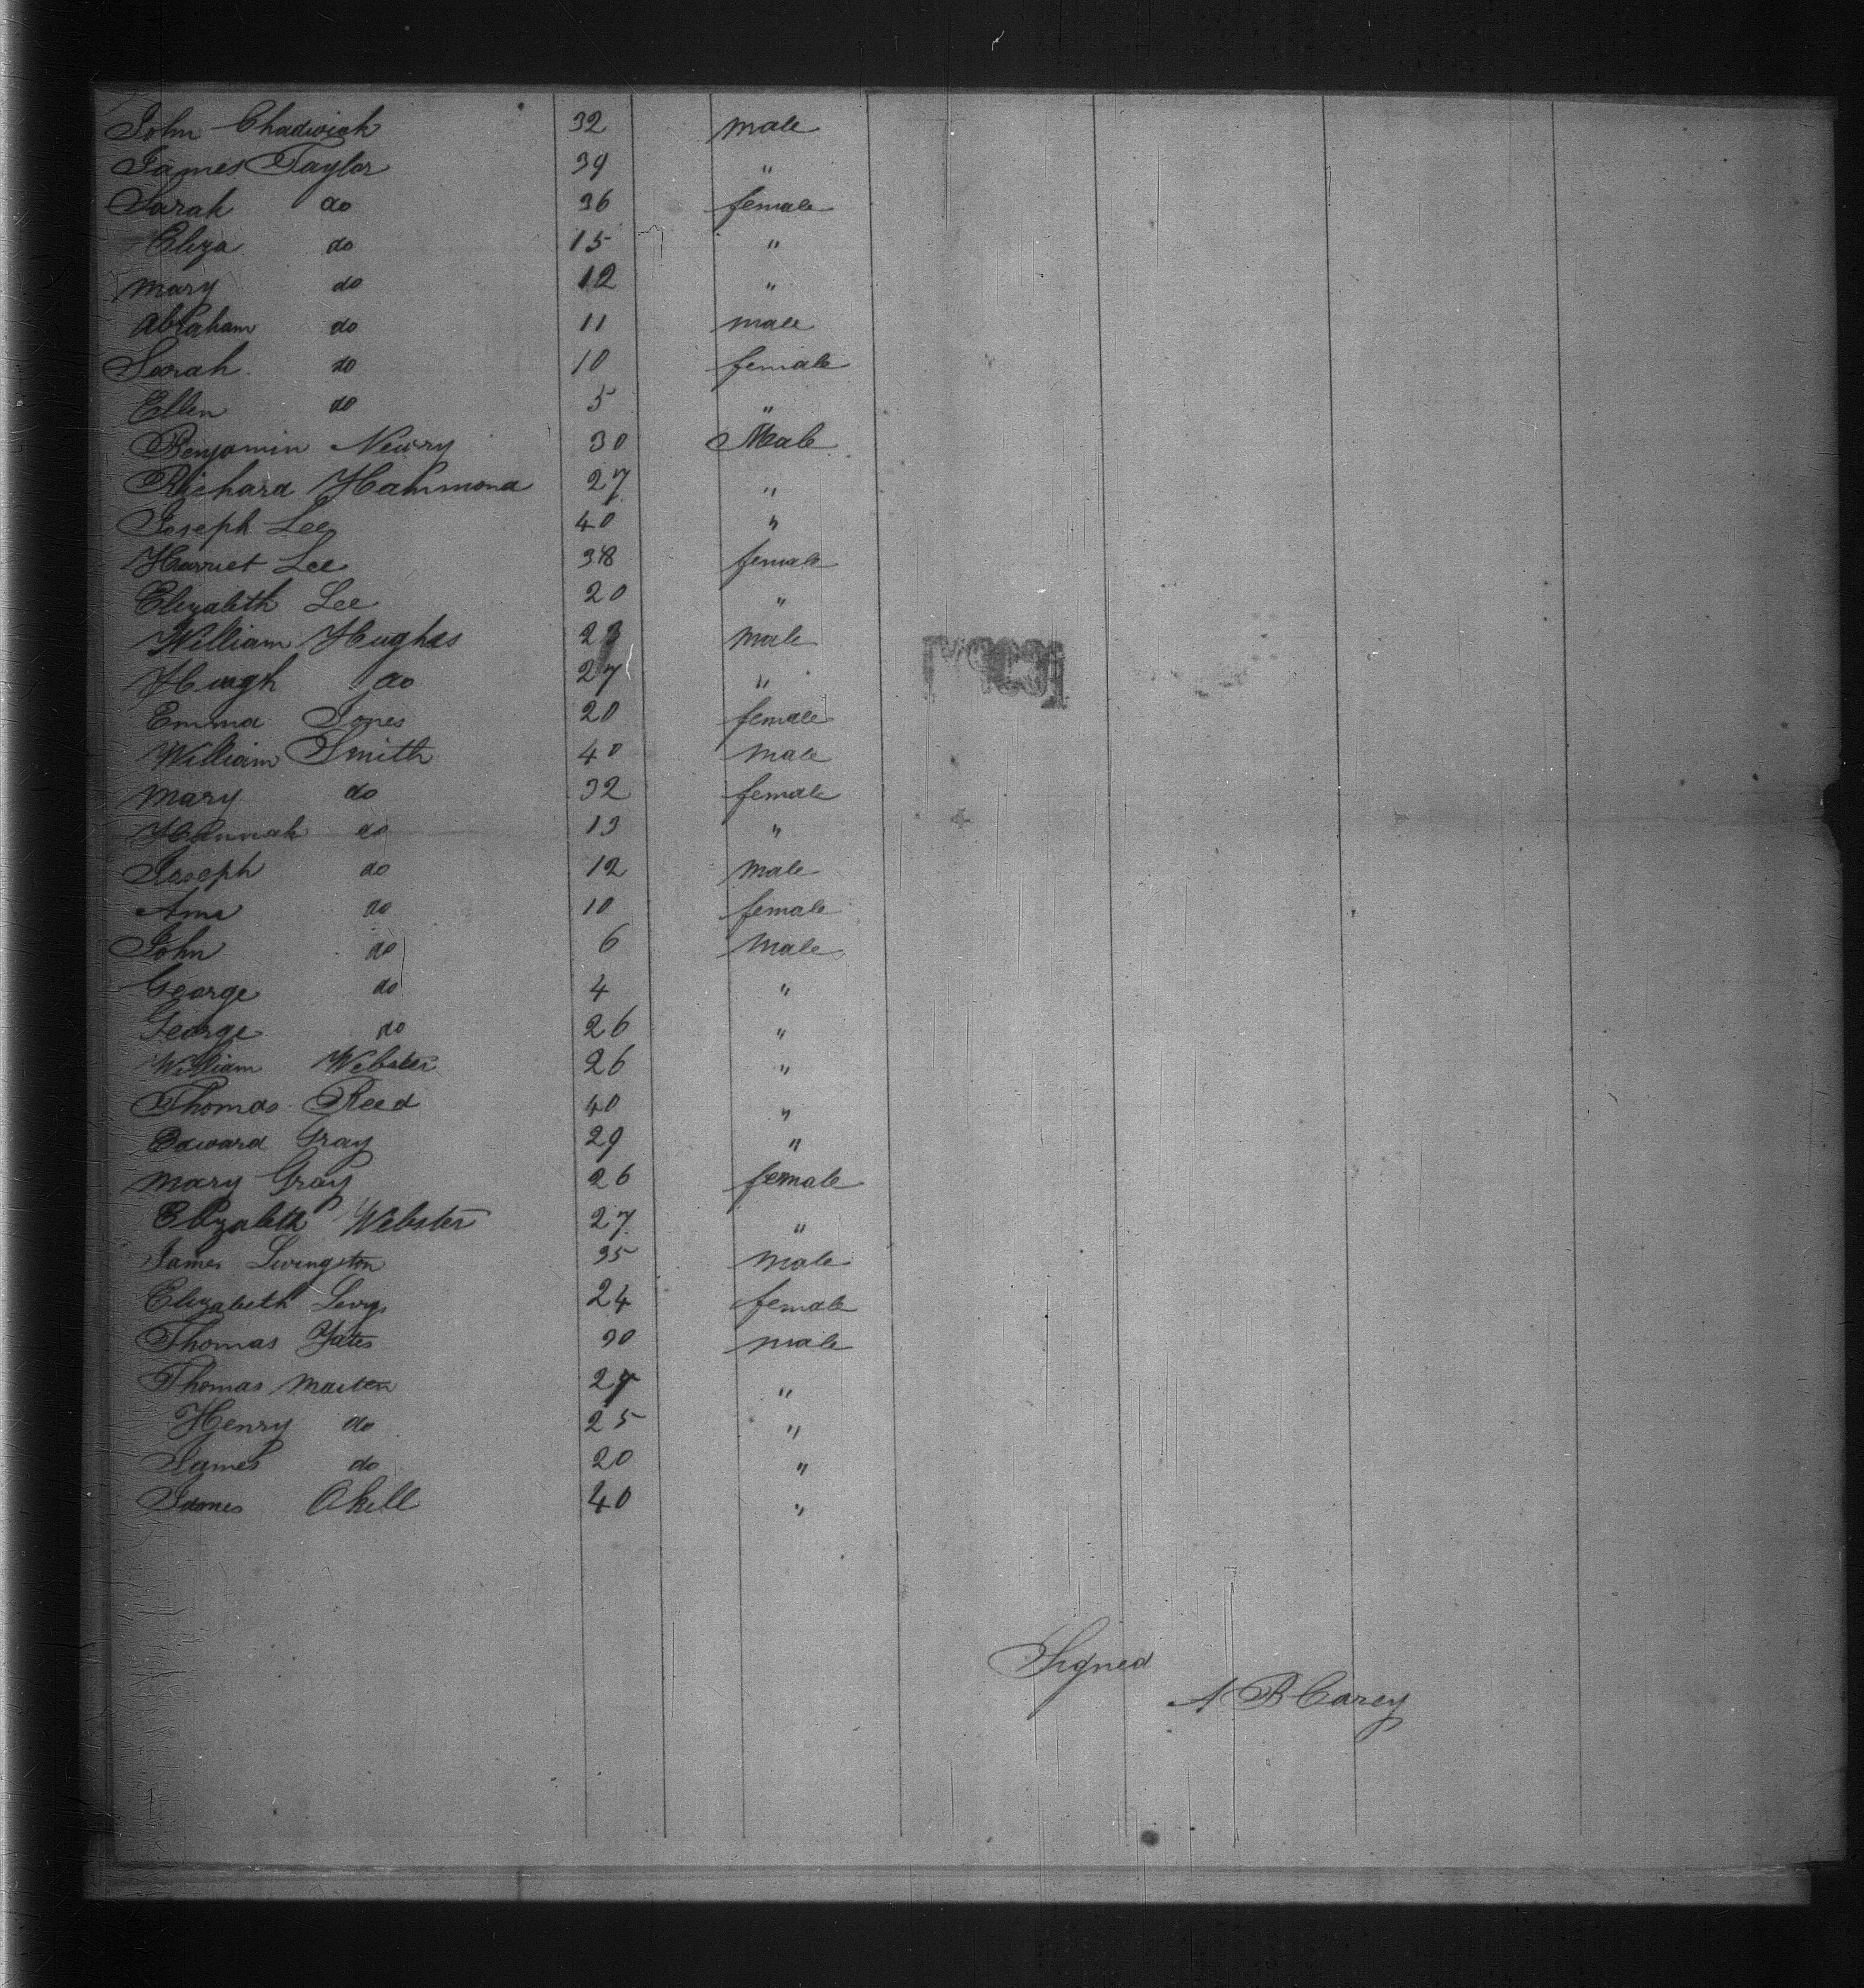 John Chadwick 32 male
James Taylor 39 "
Sarah do 36 female
Eliza do 15 "
Mary do 12 "
Abraham do 11 male
Sarah do 10 female
Ellen do 5 "
Benjamin Newry 30 Male
Richard Hammond 27 "
Joseph Lee 40 "
Harriet Lee 38 female
Elizabeth Lee 20 "
William Hughes 23 male
Hugh do 27 "
Emma Jones 20 female
William Smith 40 male
Mary do 32 female
Hannah do 13 "
Joseph do 12 male
Ann do 10 female
John do 6 male
George do 4 "
George do 26 "
William Webster 26 "
Thomas Reed 40 "
Edward Gray 29 "
Mary Gray 26 female
Elizabeth Webster 27 "
James Livingston 35 male
Elizabeth Levy 24 female
Thomas Yates 30 male
Thomas 27 "
Henry do 25 "
James do 20 "
James 40 "
Signed
A B Carey